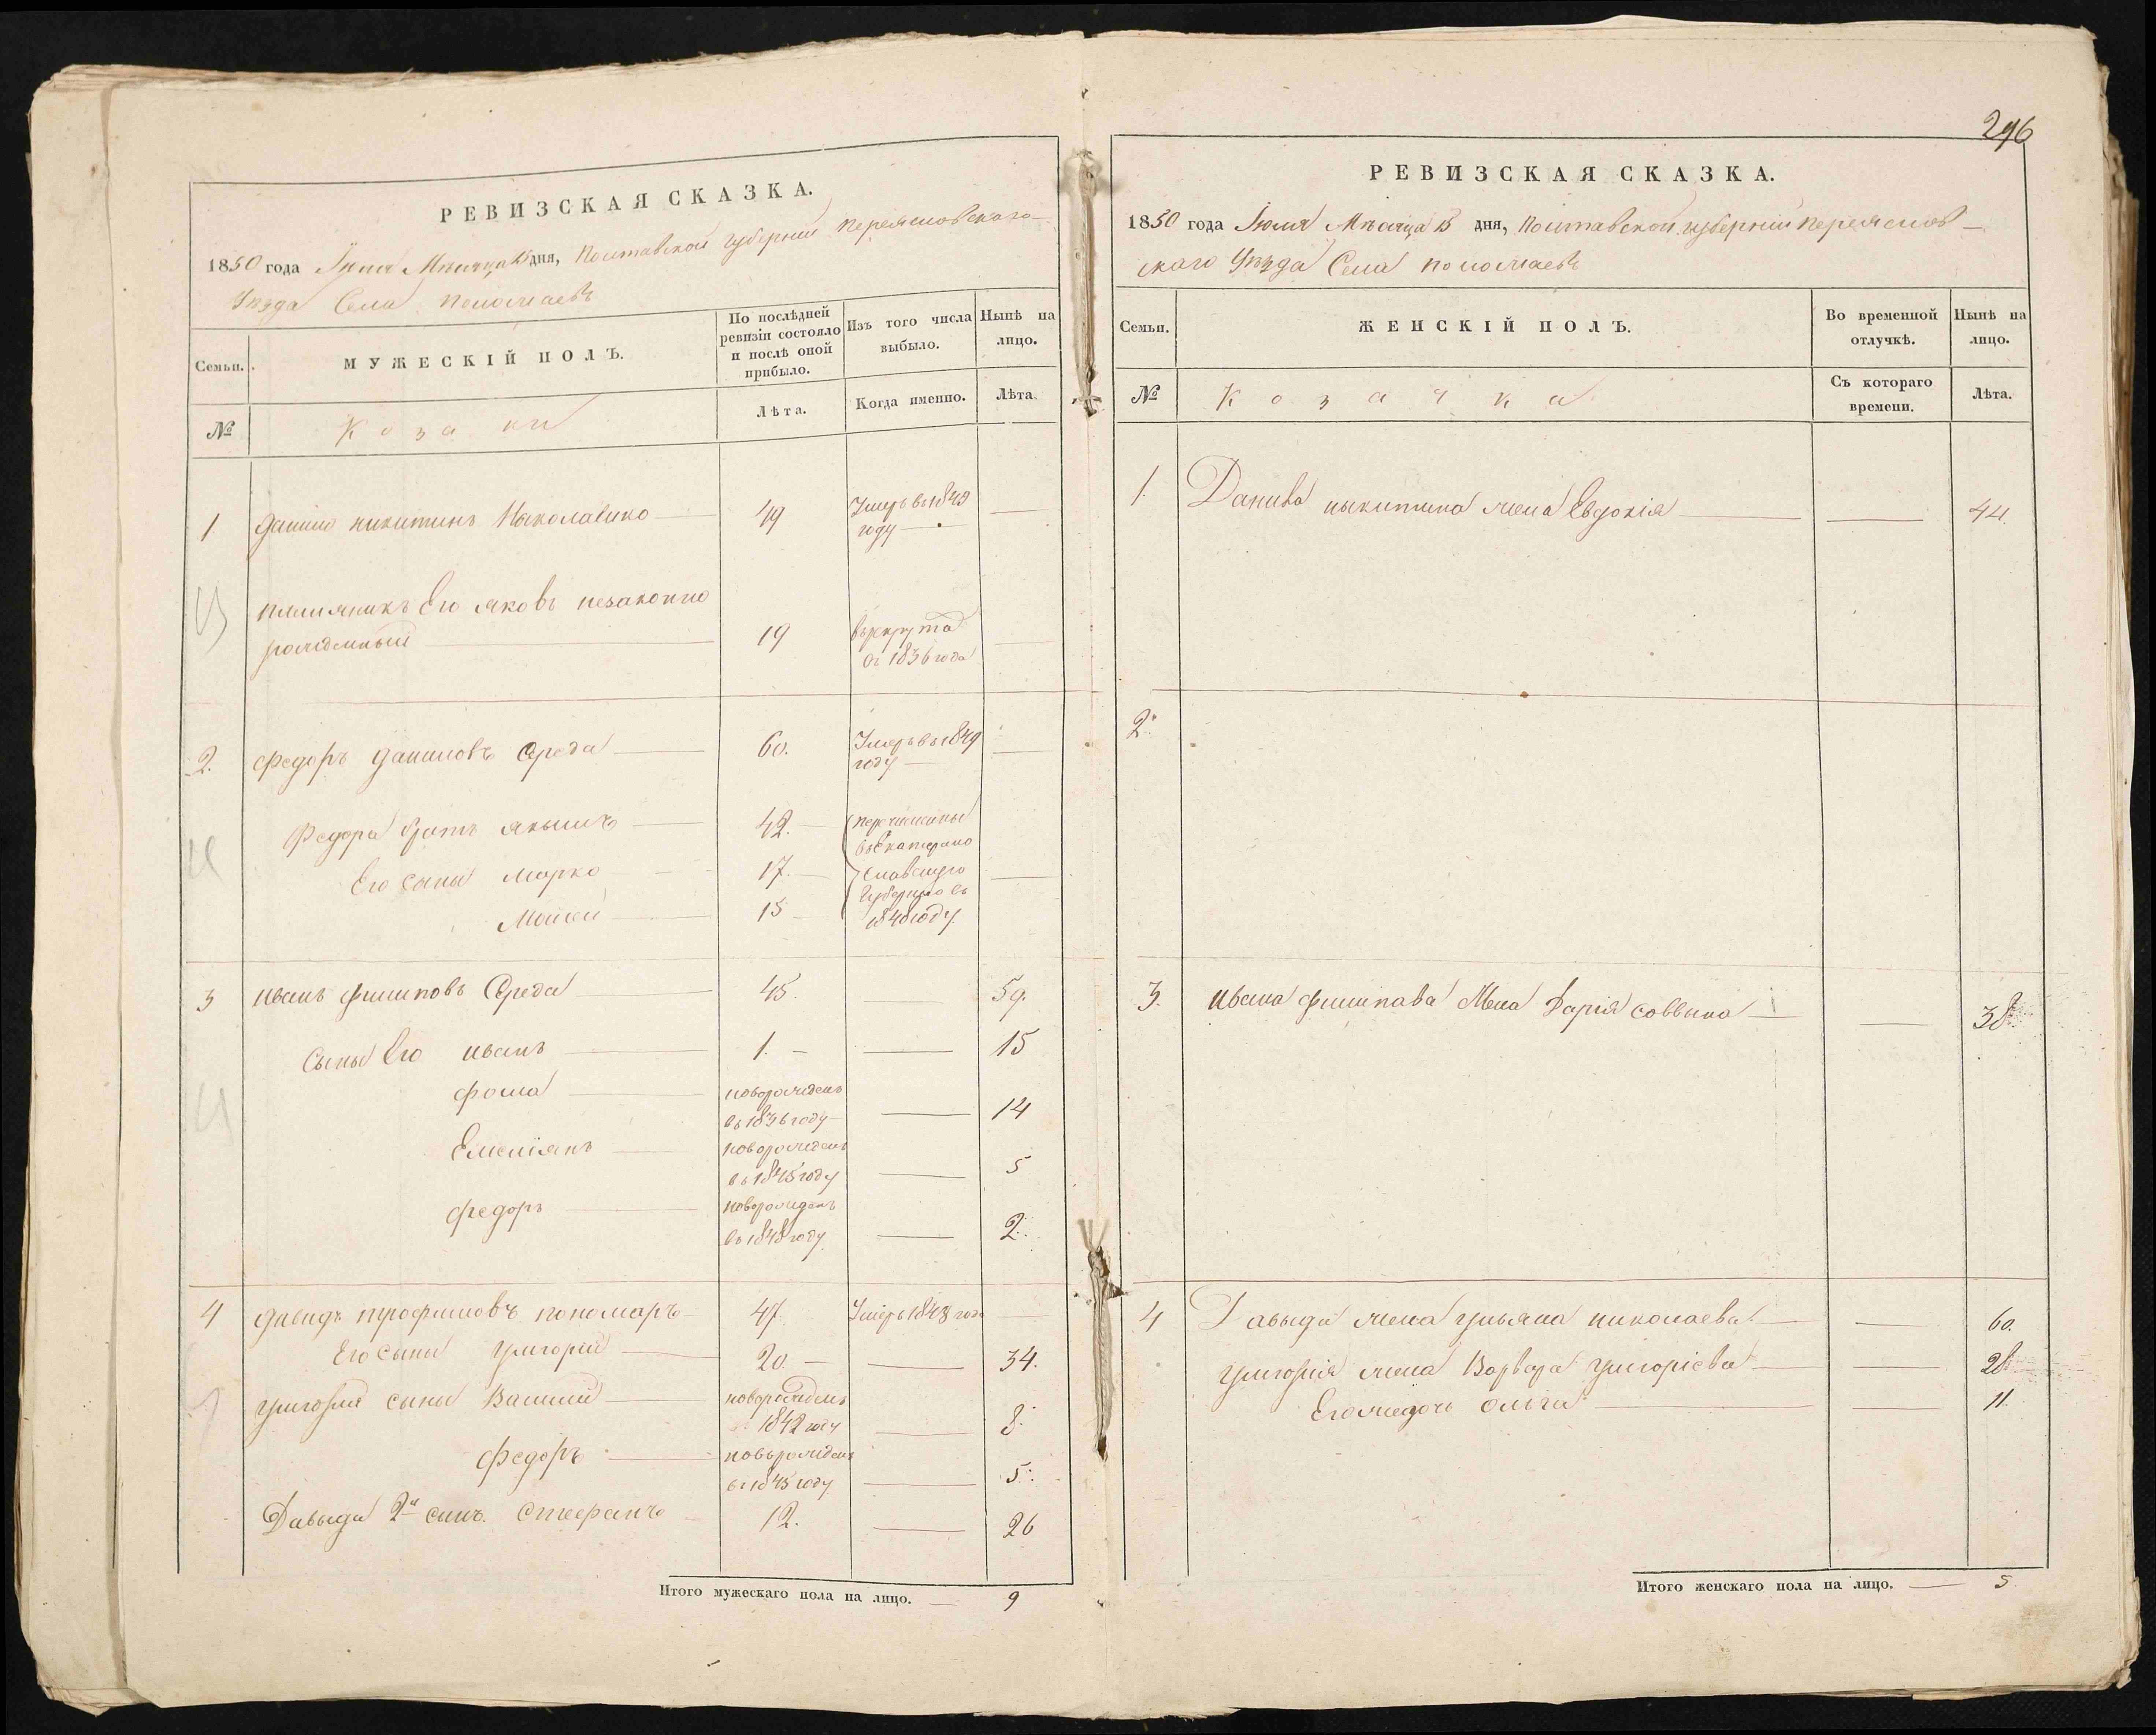 РЕВИЗСКАЯ СКАЗКА.
1850 года Іюля Мѣсяца 15 дня, Полтавской губерніи Переясловскаго
Уѣзда Села
Семьи.
МУЖЕСКІЙ ПОЛЪ.
По послѣдней ревизіи состояло и послѣ оной прибыло.
Изъ того числа выбыло.
Нынѣ на лицо.
№
Козаки
Лѣта.
Когда именно.
Лѣта.
1 Данило никитинъ 49 Умеръ въ 1849
году
племяникъ Его яковъ незаконно
рожденный 19 въ рекрута
съ 1836 года
2. федоръ даниловъ Середа 60. Умеръ въ 1849
году
Федора братъ 42. перечислены
въ Екатерино
Его сыны Марко 17. славскую
Губернію въ
Мойсей 15 1840 году.
3 иванъ филиповъ Середа 45. 59.
Сыны Его иванъ 1. 15
фома новорожденъ
въ 1836 году 14
Емеліянъ новорожденъ
въ 1845 году 5
федоръ новорожденъ
въ 1848 году 2.
4 давидъ трофимовъ пономаръ 47 Умеръ 1848 года
Его сыны григорій 20. 34.
григорія сыны Василий новорожденъ
1842 году 8.
Федоръ новорожденъ
въ 1845 году 5.
Давыда 2й синъ. Стефанъ 12. 26
Итого мужескаго пола на лицо. 9
296
РЕВИЗСКАЯ СКАЗКА.
1850 года Іюля Мѣсяца 15 дня, Полтавской губерніи Переяслов
скаго Уѣзда Села
Семьи.
ЖЕНСКІЙ ПОЛЪ.
Во временной отлучкѣ.
Нынѣ на лицо.
№
Козачка
Съ котораго времени.
Лѣта.
1. Данила никитина жена Евдокія 44.
2.
3. ивана филипава Жена Дарія саввына 38.
4 Давыда жена ульяна николаева 60.
григорія жена Варвара григоріева 28
Его ольга 11.
Итого женскаго пола на лицо. 5